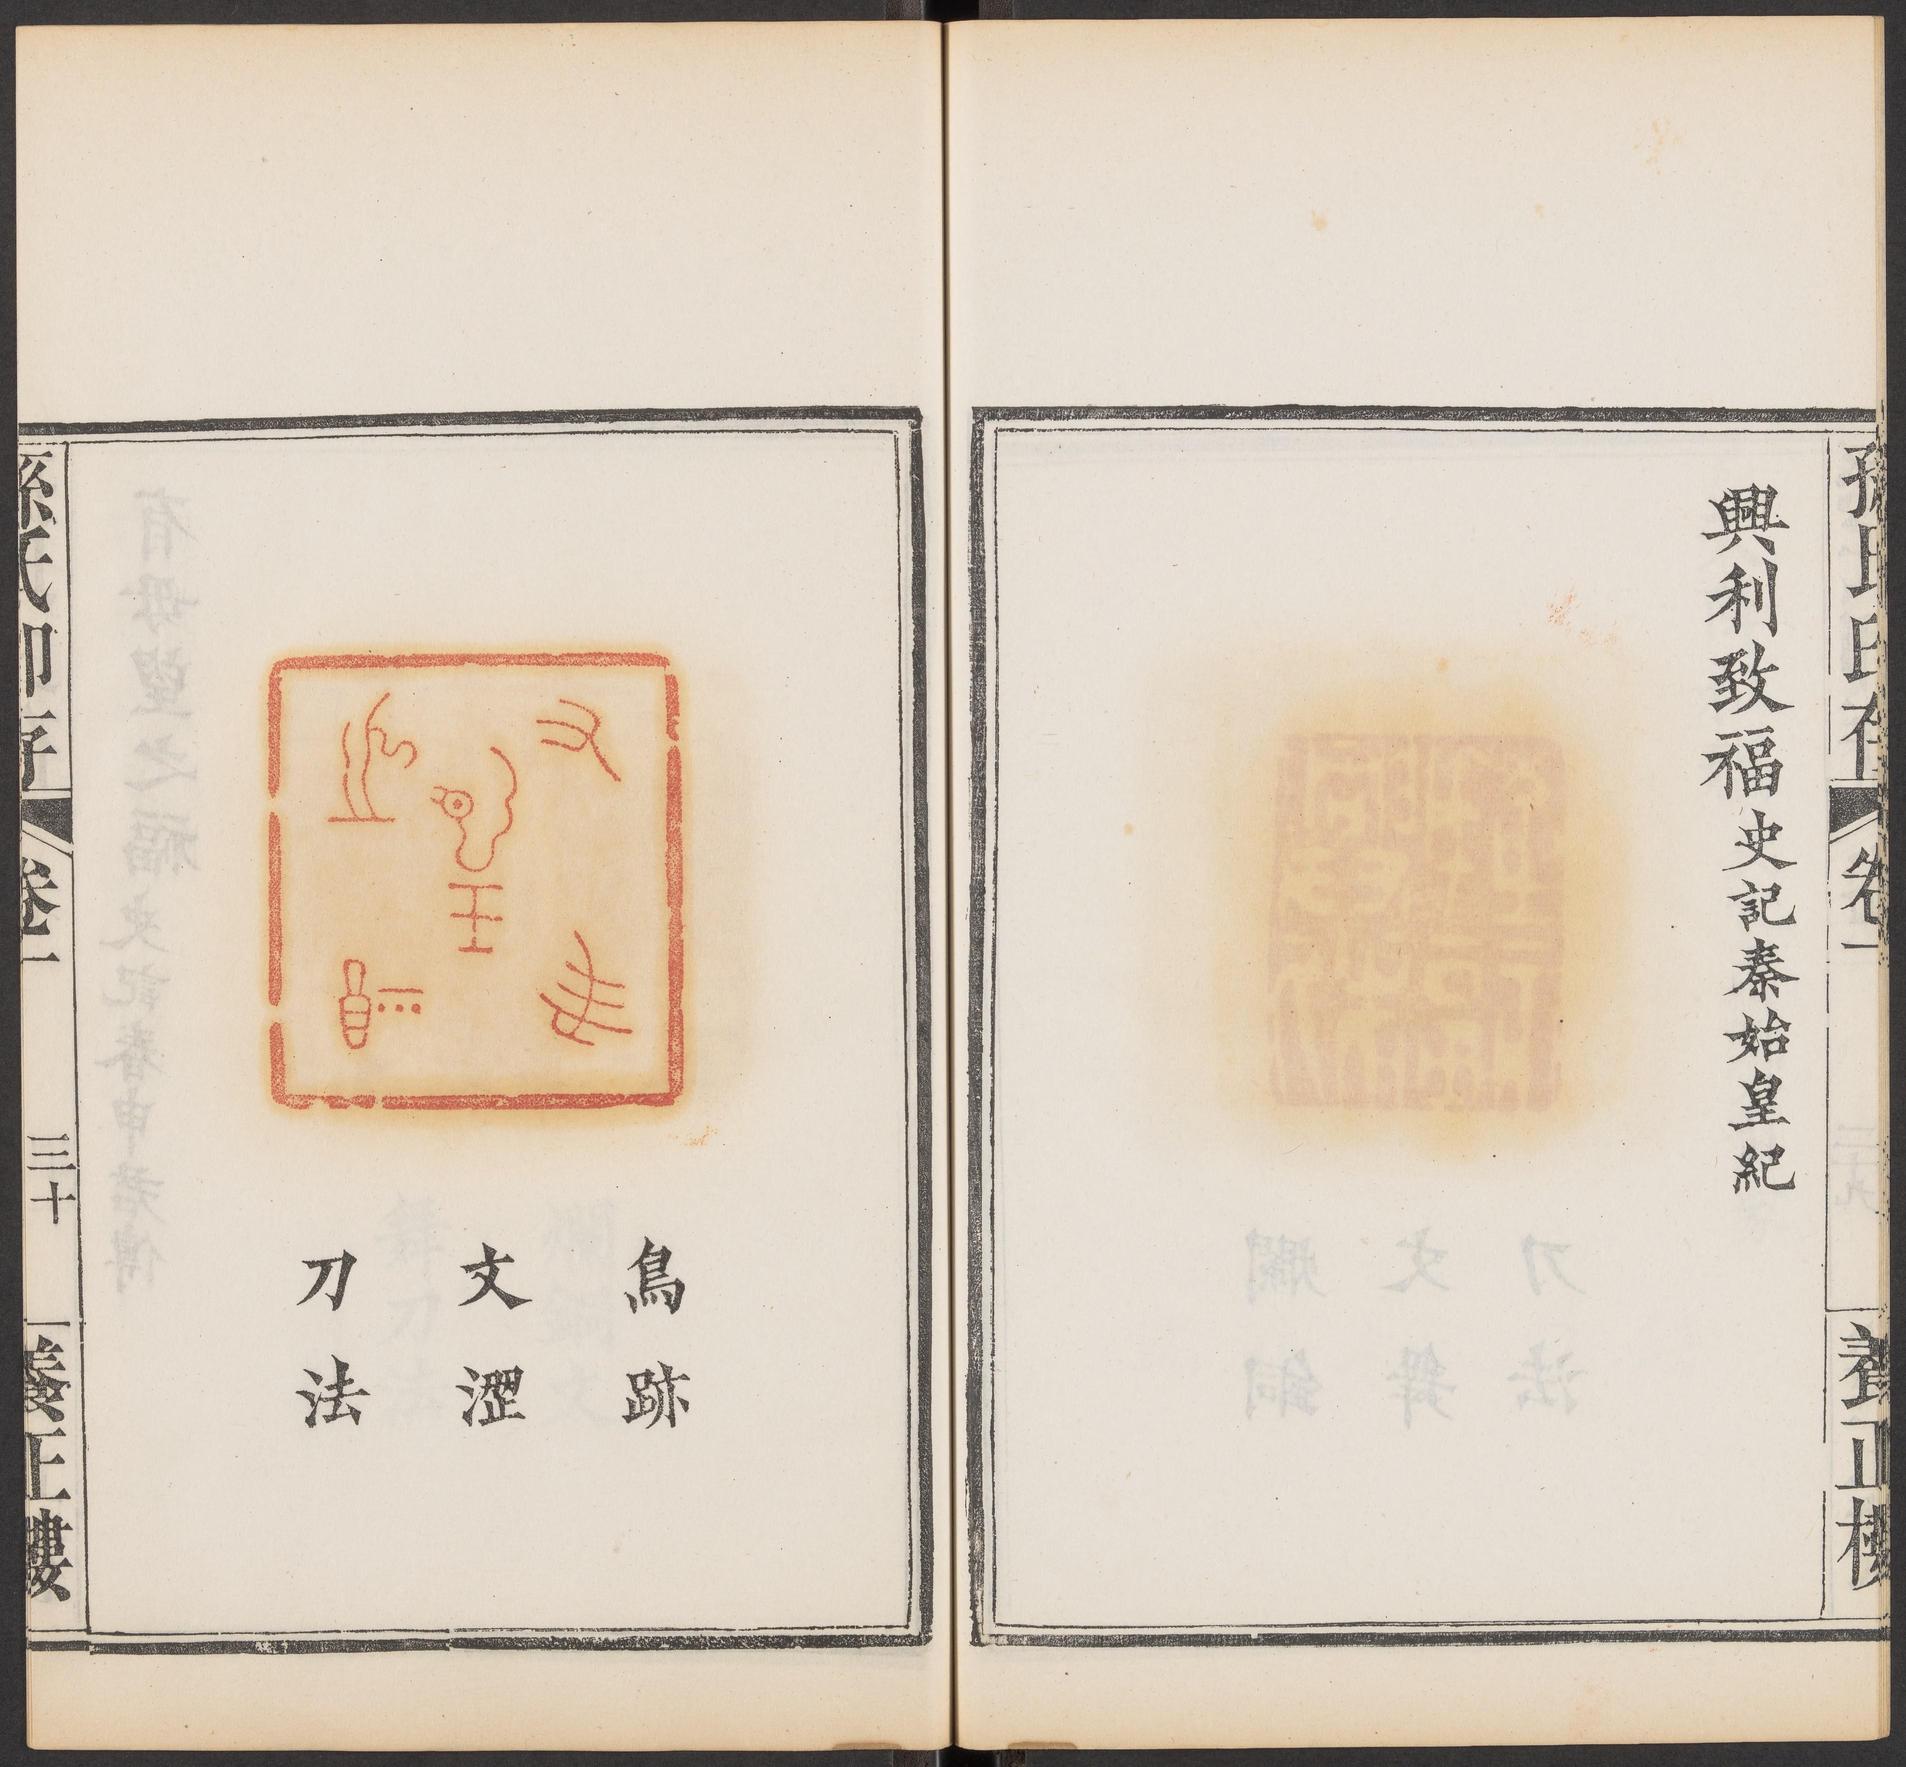 孫氏印存
卷一
養正樓
興利致福史記秦始皇紀
鳥跡
文澀
刀法
孫氏印存
卷一
三十
養正樓